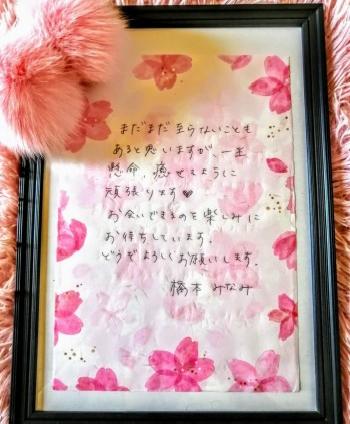 まだまだ至らないことも
あると思いますが、一生
懸命、癒せるように
頑張ります♥
お会いできるのを楽しみに
お待ちしています。
どうぞよろしくお願いします。
橋本 みなみ